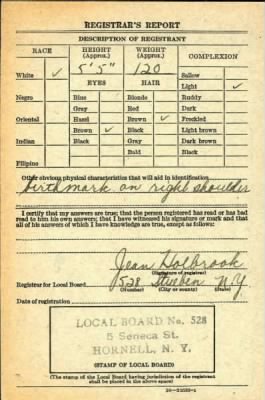 REGISTRAR'S REPORT
DESCRIPTION OF REGISTRANT
RACE HEIGHT (Approx.) WEIGHT (Approx.) COMPLEXION
White ✓ 5' 5" 120 Sallow
EYES HAIR Light ✓
Negro Blue Blonde Ruddy
Gray Red Dark
Oriental Hazel Brown ✓ Freckled
Brown ✓ Black Light brown
Indian Black Gray Dark brown
Bald Black
Filipino
Other obvious physical characteristics that will aid in identification
birthmark on right shoulder
I certify that my answers are true; that the person registered has read or has had
read to him his own answers; that I have witnessed his signature or mark and that
all of his answers of which I have knowledge are true, except as follows:
Jean Holbrook
(Signature of registrar)
Registrar for Local Board 528 Steuben N.Y.
(Number) (City or county) (State)
Date of registration
LOCAL BOARD No. 528
5 Seneca St.
HORNELL, N. Y.
(STAMP OF LOCAL BOARD)
(The stamp of the Local Board having jurisdiction of the registrant
shall be placed in the above space)